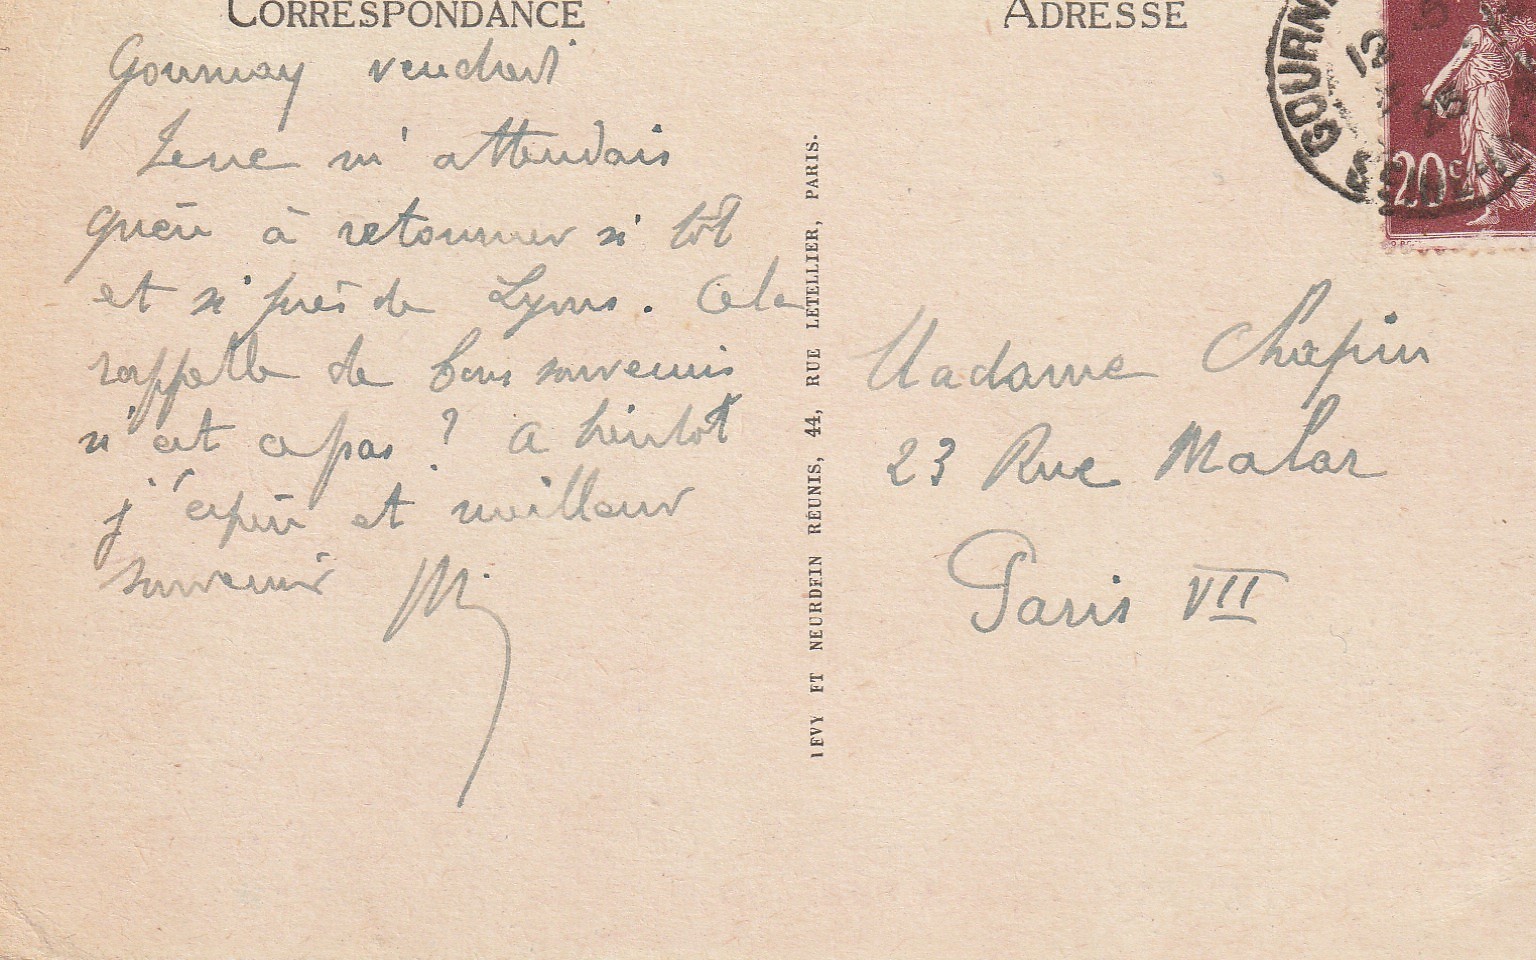 CORRESPONDANCE
Gournay vendredi
Je ne m'attendais
guère à retourner si tôt
et si près de Lyons. Cela
rappelle de bons souvenirs
n'est ce pas ? A bientôt
j'espère et meilleur
souvenir M.
LEVY ET NEURDEIN RÉUNIS, 44, RUE LETELLIER, PARIS.
ADRESSE
GOURNA
12
25
20c
Madame Chapin
23 Rue Malar
Paris VII